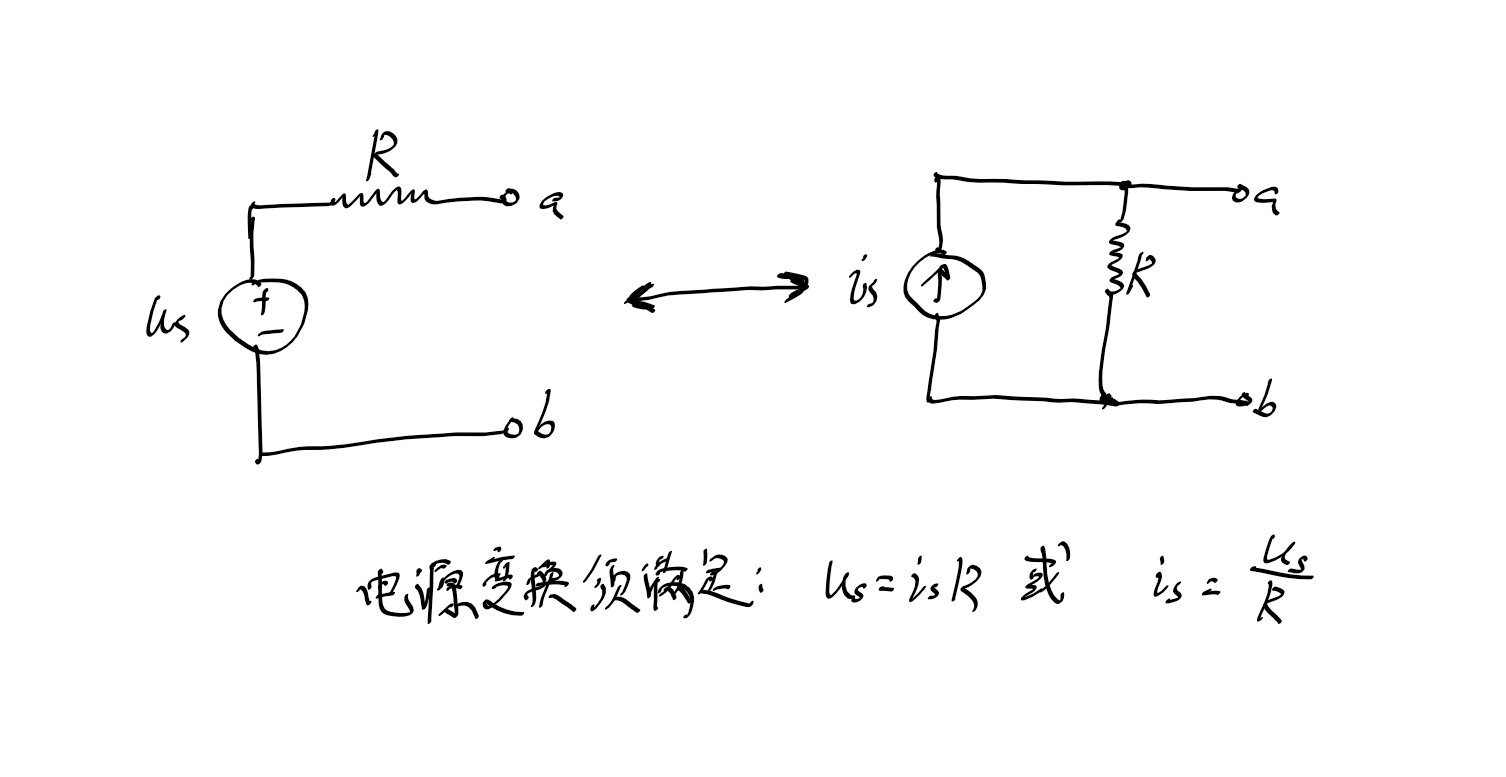 R
a
us
+
−
b
is
a
R
b
电源变换须满足： us = is R 或 is = us/R